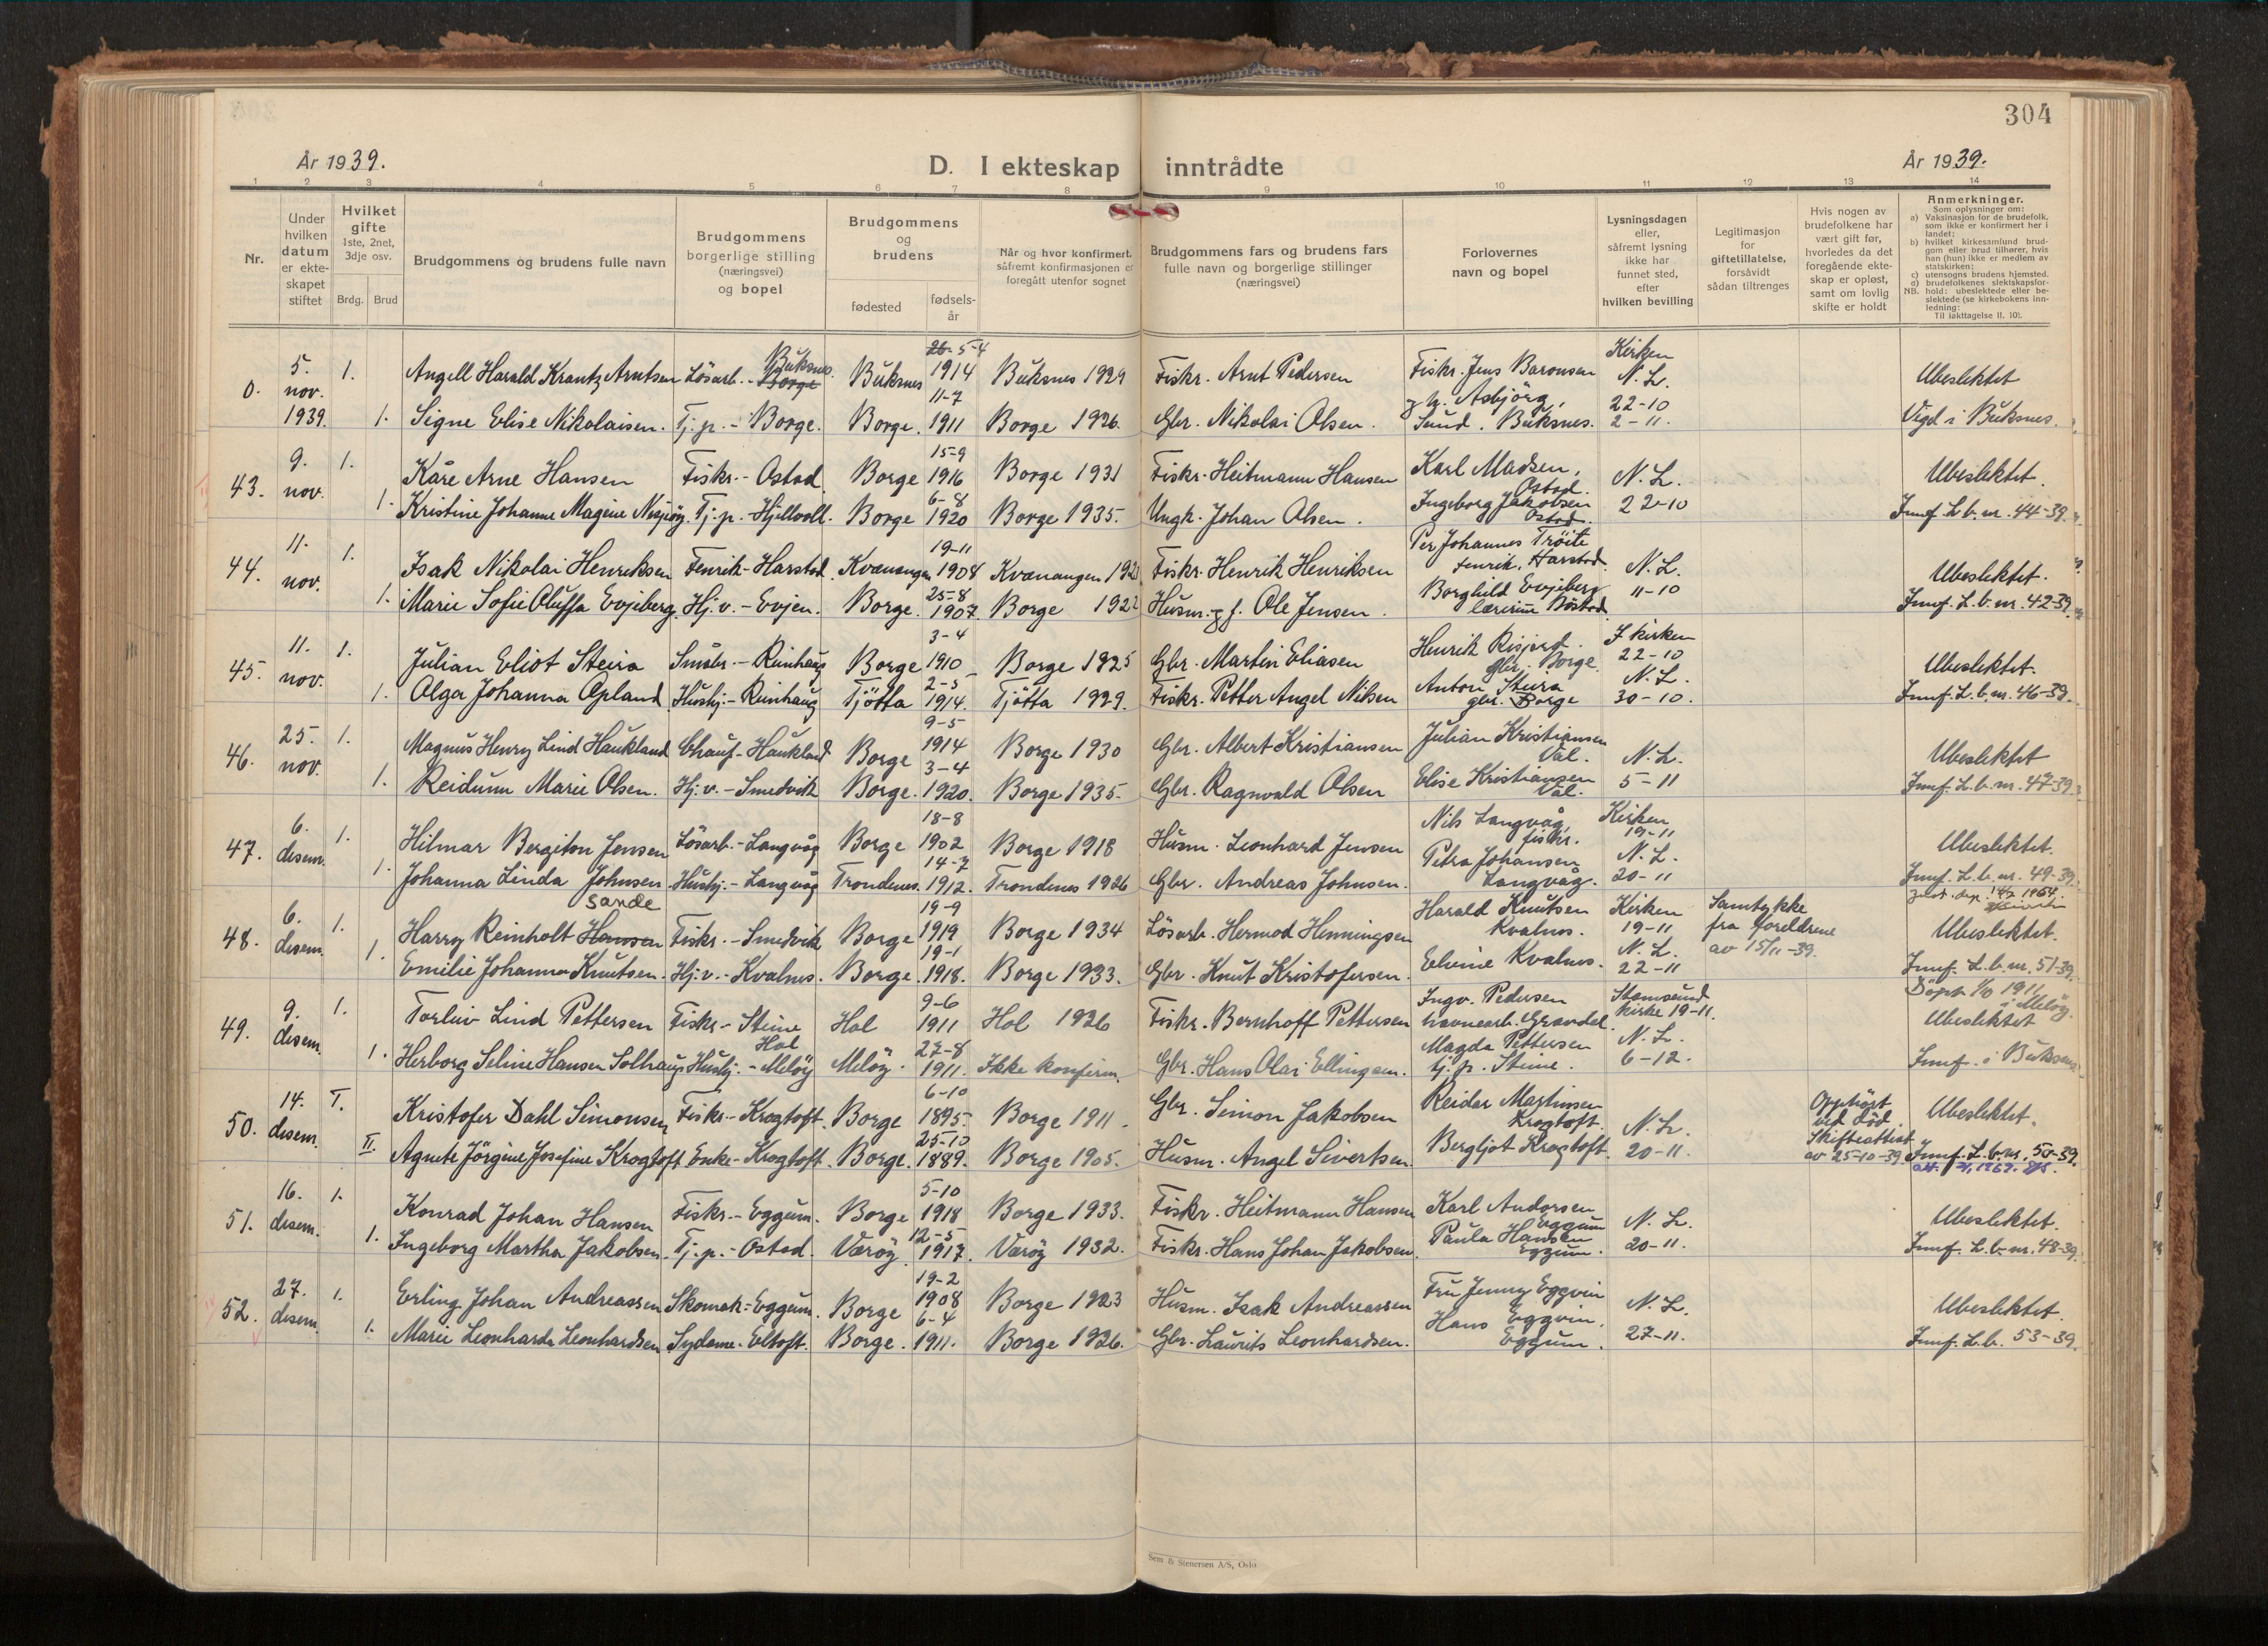 304
År 1939.
D. I ekteskap inntrådte
År 1939.
1 2 3 4 5 6 7 8 9 10 11 12 13 14
Nr.
Under hvilken datum er ekte-skapet stiftet
Hvilket gifte 1ste, 2net, 3dje osv.
Brdg. Brud
Brudgommens og brudens fulle navn
Brudgommens borgerlige stilling (næringsvei) og bopel
Brudgommens og brudens
fødested
fødsels-år
Når og hvor konfirmert, såfremt konfirmasjonen er foregått utenfor sognet
Brudgommens fars og brudens fars fulle navn og borgerlige stillinger (næringsvei)
Forlovernes navn og bopel
Lysningsdagen eller, såfremt lysning ikke har funnet sted, efter hvilken bevilling
Legitimasjon for giftetillatelse, forsåvidt sådan tiltrenges
Hvis nogen av brudefolkene har vært gift før, hvorledes da det foregående ekte-skap er opløst, samt om lovlig skifte er holdt
Anmerkninger.
Som oplysninger om:
a) Vaksinasjon for de brudefolk, som ikke er konfirmert her i landet;
b) hvilket kirkesamfund brud-gom eller brud tilhører, hvis han (hun) ikke er medlem av statskirken;
c) utensogns brudens hjemsted.
d) brudefolkenes slektskapsfor-
NB. hold: ubeslektede eller be-slektede (se kirkebokens inn-ledning:
Til iakttagelse II. 10).
0. 5. nov. 1939. 1. Angell Harald Krantz Arntsen Lösarb. - Borge Buksnes. Buksnes 26-5-4 1914 Buksnes 1929 Fiskr. Arnt Pedersen Fiskr. Jens Baronsen Kirken N. L. Ubeslektet
1. Signe Elise Nikolaisen. Tj. p. - Borge. Borge. 11-7 1911 Borge 1926. Gbr. Nikolai Olsen. Asbjörg, Sund. Buksnes. 22-10 2-11. Vigd i Buksnes.
43. 9. nov. 1. Kåre Arne Hansen Fiskr. - Ostad Borge 15-9 1916 Borge 1931 Fiskr. Heitmann Hansen Karl Madsen, Ostad. N. L. Ubeslektet.
1. Kristine Johanne Magine Tj. p. - Hjellvoll. Borge 6-8 1920 Borge 1935. Ungk. Johan Olsen. Ingeborg Jakobsen Ostad. 22-10 Innf. L. b. nr. 44-39.
44. 11. nov. 1. Isak Nikolai Henriksen Fenrik - Harstad. Kvænangen 19-11 1908 Kvænangen Fiskr. Henrik Henriksen Per Johannes Tröite fenrik, Harstad. N. L. Ubeslektet.
1. Marie Sofie Oluffa Evjeberg. Hj. v. - Evjen. Borge. 25-8 1907. Borge 1922 Husm. og f. Ole Jensen. Borghild Evjeberg lærerinne Böstad. 11-10 Innf. L. b. nr. 42-39.
45. 11. nov. 1. Julian Eliot Steira Småbr. - Reinhaug Borge 3-4 1910 Borge 1925 Gbr. Martin Eliasen Henrik Risjord. gbr. Borge I kirken 22-10 Ubeslektet.
1. Alga Johanna Apland Hushj. - Reinhaug Tjötta 2-5 1914. Tjötta 1929. Fiskr. Petter Angel Nilsen Anton Steira gbr. Borge N. L. 30-10. Innf. L. b. nr. 46-39.
46. 25. nov. 1. Magnus Henry Lind Haukland Chauf - Haukland Borge 9-5 1914 Borge 1930 Gbr. Albert Kristiansen Julian Kristiansen Val. N. L. Ubeslektet
1. Reidunn Marie Olsen. Hj. v. - Smedvik Borge. 3-4 1920. Borge 1935. Gbr. Ragnvald Olsen Elise Kristiansen Val. 5-11 Innf. L. b. nr. 47-39.
47. 6. desem. 1. Hilmar Bergiton Jensen Lösarb. - Langvåg Borge 18-8 1902 Borge 1918 Husm. Leonhard Jensen Nils Langvåg, fiskr. Kirken 19-11 Ubeslektet.
1. Johanna Linda Johnsen Hushj. - Langvåg Trondenes 14-7 1912. Trondenes 1926 Gbr. Andreas Johnsen. Petra Johansen Langvåg. N. L. 20-11 Innf. L. b. nr. 49-39.
48. 6. desem. 1. Harry Reinholt Hansen Sande Fiskr. - Smedvik Borge 19-9 1919 Borge 1934 Lösarb. Hermod Henningsen Harald Knutsen Kvalnes. Kirken 19-11 Samtykke fra foreldrene av 15/11-39. Ubeslektet.
1. Emilie Johanna Knutsen. Hj. v. - Kvalnes. Borge 19-1 1918. Borge 1933. Gbr. Knut Kristofersen. Kvalnes. N. L. 22-11 Innf. L. b. nr. 51-39.
49. 9. desem. 1. Torleiv Lind Pettersen Fiskr. - Steine Hol Hol 9-6 1911 Hol 1926 Fiskr. Bernhoff Pettersen Ingv. Pedersen havnearb. Gravdal. Stamsund kirke 19-11. Döpt 1/10 1911 i Melöy. Ubeslektet
1. Herborg Seline Hansen Solhaug Hushj. - Melöy Melöy. 27-8 1911. Ikke konfirm. Gbr. Hans Olai Ellingsen. Magda Pettersen tj. p. Steine. N. L. 6-12. Innf. i Buksnes
50. 14. desem. I. Kristofer Dahl Simonsen Fiskr. - Krogtoft. Borge 6-10 1895. Borge 1911. Gbr. Simon Jakobsen Reidar Martinsen Krogtoft. N. L. Opphört ved död. Skifteattest av 25-10-39. Ubeslektet.
II. Agnete Jörgine Josefine Krogtoft Enke - Krogtoft. Borge. 25-10 1889. Borge 1905. Husm. Angel Sivertsen Bergljot Krogtoft. 20-11. Innf. L. b. nr. 50-39.
51. 16. desem. 1. Konrad Johan Hansen Fiskr. - Eggum. Borge 5-10 1918 Borge 1933. Fiskr. Heitmann Hansen Karl Andorsen Eggum N. L. Ubeslektet.
1. Ingeborg Martha Jakobsen. Tj. p. - Ostad. Væröy 12-5 1917. Væröy 1932. Fiskr. Hans Johan Jakobsen. Paula Hansen Eggum. 20-11. Innf. L. b. nr. 48-39.
52. 27. desem. 1. Erling Johan Andreassen Skomak. - Eggum. Borge 19-2 1908 Borge 1923 Husm. Isak Andreassen Fru Jenny Eggvin N. L. Ubeslektet.
1. Marie Leonharda Leonhardsen Sydame - Eltoft. Borge. 6-4 1911. Borge 1926. Gbr. Laurits Leonhardsen. Hans Eggvin, Eggum. 27-11. Innf. L. b. 53-39.
Sem & Stenersen A/S, Oslo